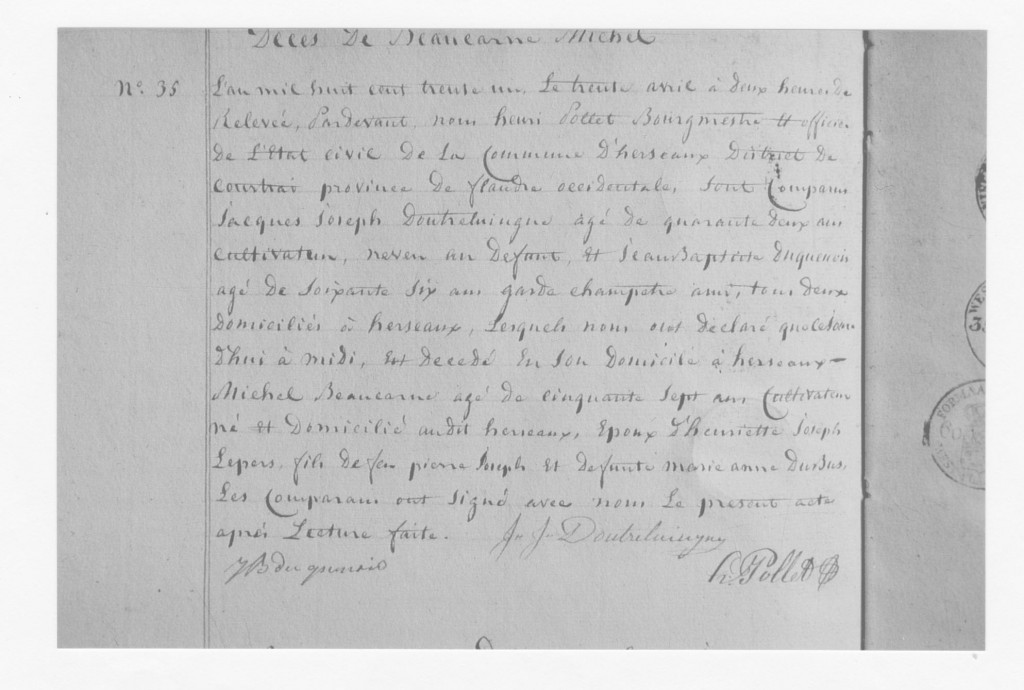 Déces De Beaucarne Michel
N° 35
L'an mil huit cent trente un, Le trente avril à deux heures de
Relevée, Pardevant nous henri Pollet Bourgmestre et officier
de L'Etat civil De La Commune D'herseaux District De
Courtrai province De flandre occidentale, sont Comparus
Jacques Joseph Doutreluingne agé de quarante deux ans
Cultivateur, neveu au Defunt, et Jean Baptiste Duquenoi
agé De Soixante Six ans garde champetre ami, tous deux
Domiciliés à herseaux, Lesquels nous ont déclaré que ce
D'hui à midi, Est Decedé En Son Domicile à herseaux-
Michel Beaucarne agé De cinquante Sept ans Cultivateur
né et Domicilié audit herseaux, Epoux D'henriette Joseph
Lepers, fils De feu pierre Joseph Et defunte marie anne Dubus,
Les Comparans ont Signé avec nous Le present acte
aprés Lecture faite.
J. J. Doutreluingne
JB duquenoi
h. Pollet B